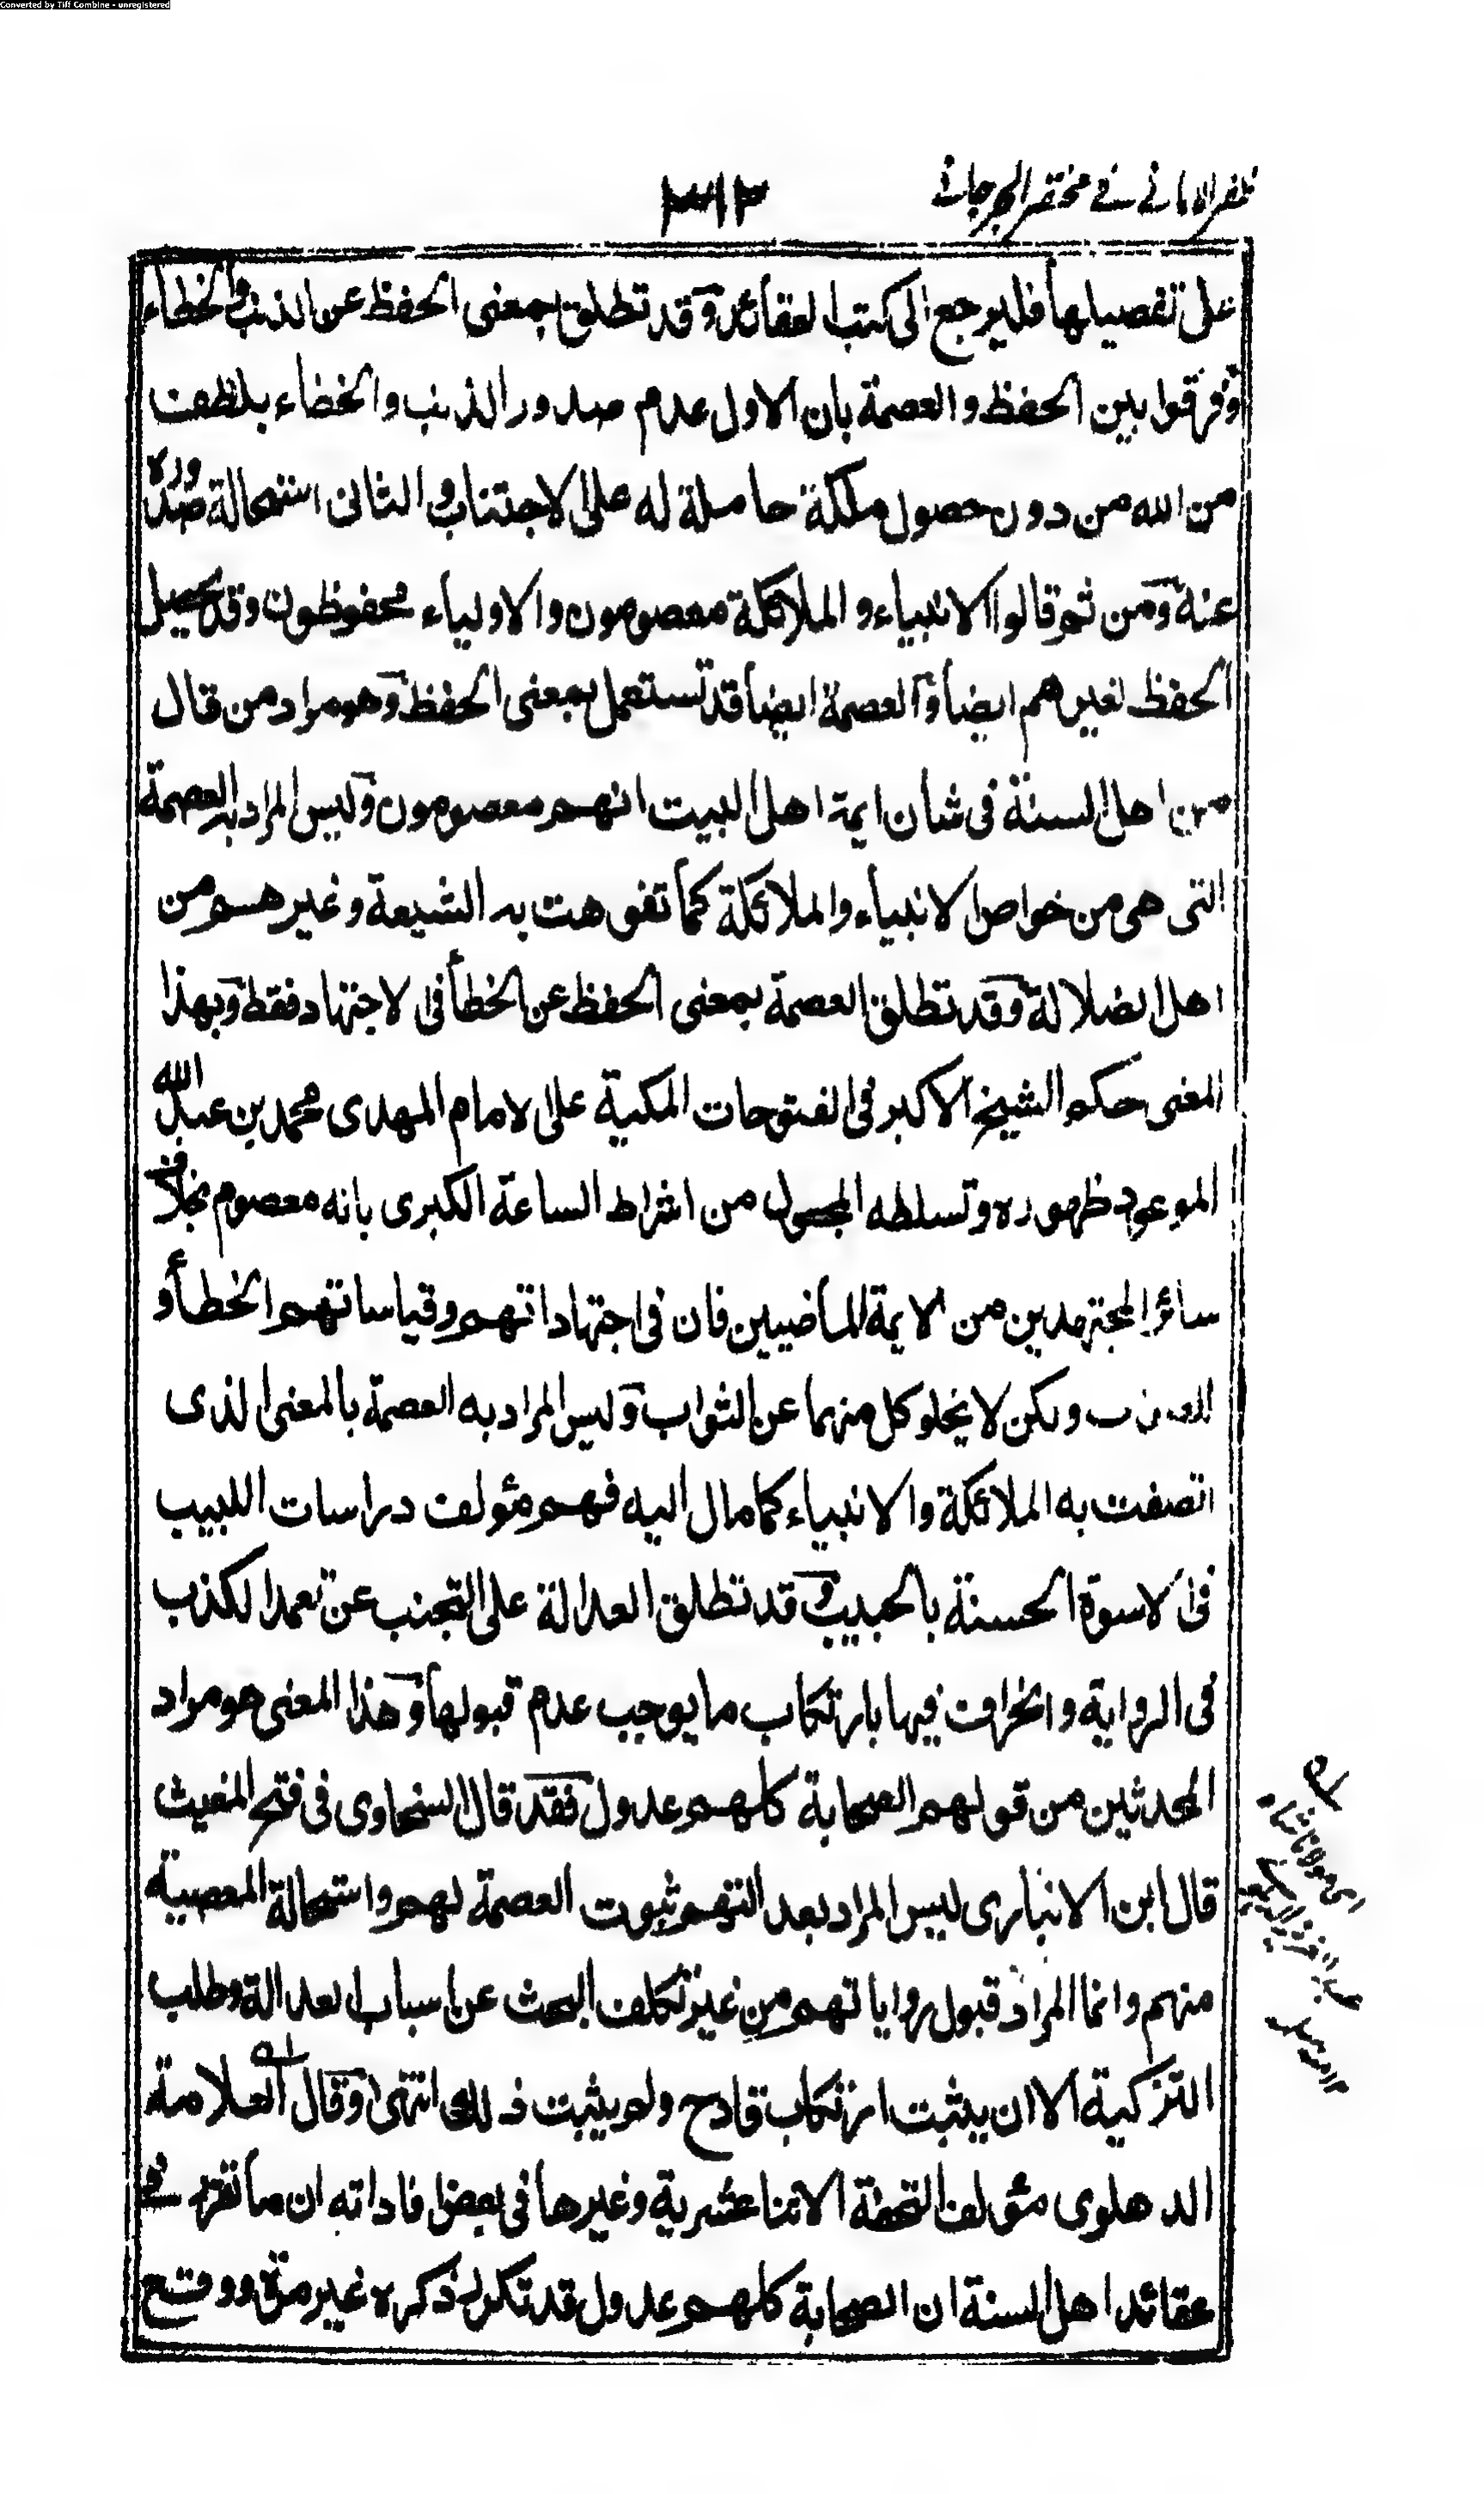 Converted by Tiff Combine - unregistered
ظفر الامانی فی مختصر الجرجانی
٣١٢
على تفصيلها فليرجع الى كتب العقائد وقد تطلق بمعنى الحفظ عن الذنب والخطاء
وفرقوا بين الحفظ والعصمة بان الاول عدم صدور الذنب والخطاء بلطف
من الله من دون حصول ملكة حاملة له على الاجتناب والثانى استحالة صدوره
عنه ومن ثم قالوا الانبياء والملائكة معصومون والاولياء محفوظون وقد يحصل
الحفظ لغيرهم ايضا والعصمة ايضا قد تستعمل بمعنى الحفظ وهو مراد من قال
من اهل السنة فى شان ايمة اهل البيت انهم معصومون وليس المراد به العصمة
التى هى من خواص الانبياء والملائكة كما تفوهت به الشيعة وغيرهم من
اهل الضلالة وقد تطلق العصمة بمعنى الحفظ عن الخطأ فى الاجتهاد فقط وبهذا
المعنى حكم الشيخ الاكبر فى الفتوحات المكية على الامام المهدى محمد بن عبد الله
الموعود ظهوره وتسلطه المجعول من اشراط الساعة الكبرى بانه معصوم بخلاف
سائر المجتهدين من الايمة الماضيين فان فى اجتهاداتهم وقياساتهم الخطأ و
الصواب ولكن لا يخلو كل منهما عن الثواب وليس المراد به العصمة بالمعنى الذى
اتصفت به الملائكة والانبياء كما مال اليه فهم مؤلف دراسات اللبيب
فى الاسوة الحسنة بالحبيب وقد تطلق العدالة على التجنب عن تعمد الكذب
فى الرواية وانحراف فيها بارتكاب ما يوجب عدم قبولها وهذا المعنى هو مراد
المحدثين من قولهم الصحابة كلهم عدول فقد قال السخاوى فى فتح المغيث
قال ابن الانبارى ليس المراد بعد التهم ثبوت العصمة لهم واستحالة المعصية
منهم وانما المراد قبول رواياتهم من غير تكلف البحث عن اسباب العدالة وطلب
التزكية الا ان يثبت ارتكاب قادح ولم يثبت ذلك انتهى وقال العلامة
الدهلوى مؤلف التحفة الاثنا عشرية وغيرها فى بعض افاداته ان ما تقرر فى
عقائد اهل السنة ان الصحابة كلهم عدول قد تكرر ذكره غير مرة ووقع